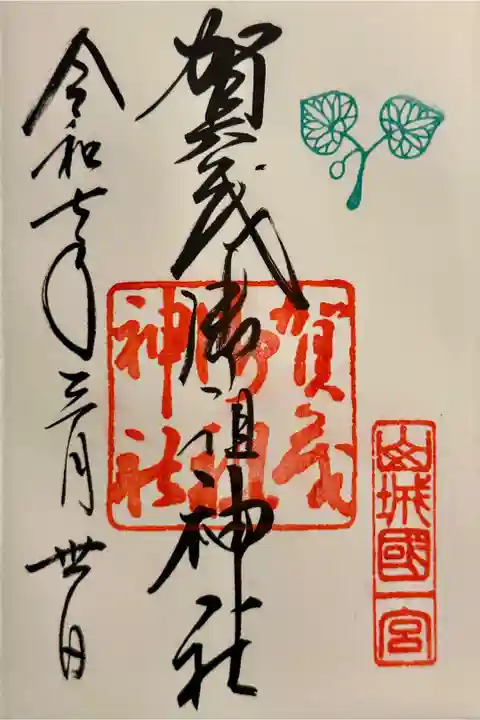 山城國一宮
賀茂御祖神社
賀茂
御祖
神社
令和七年三月丗日